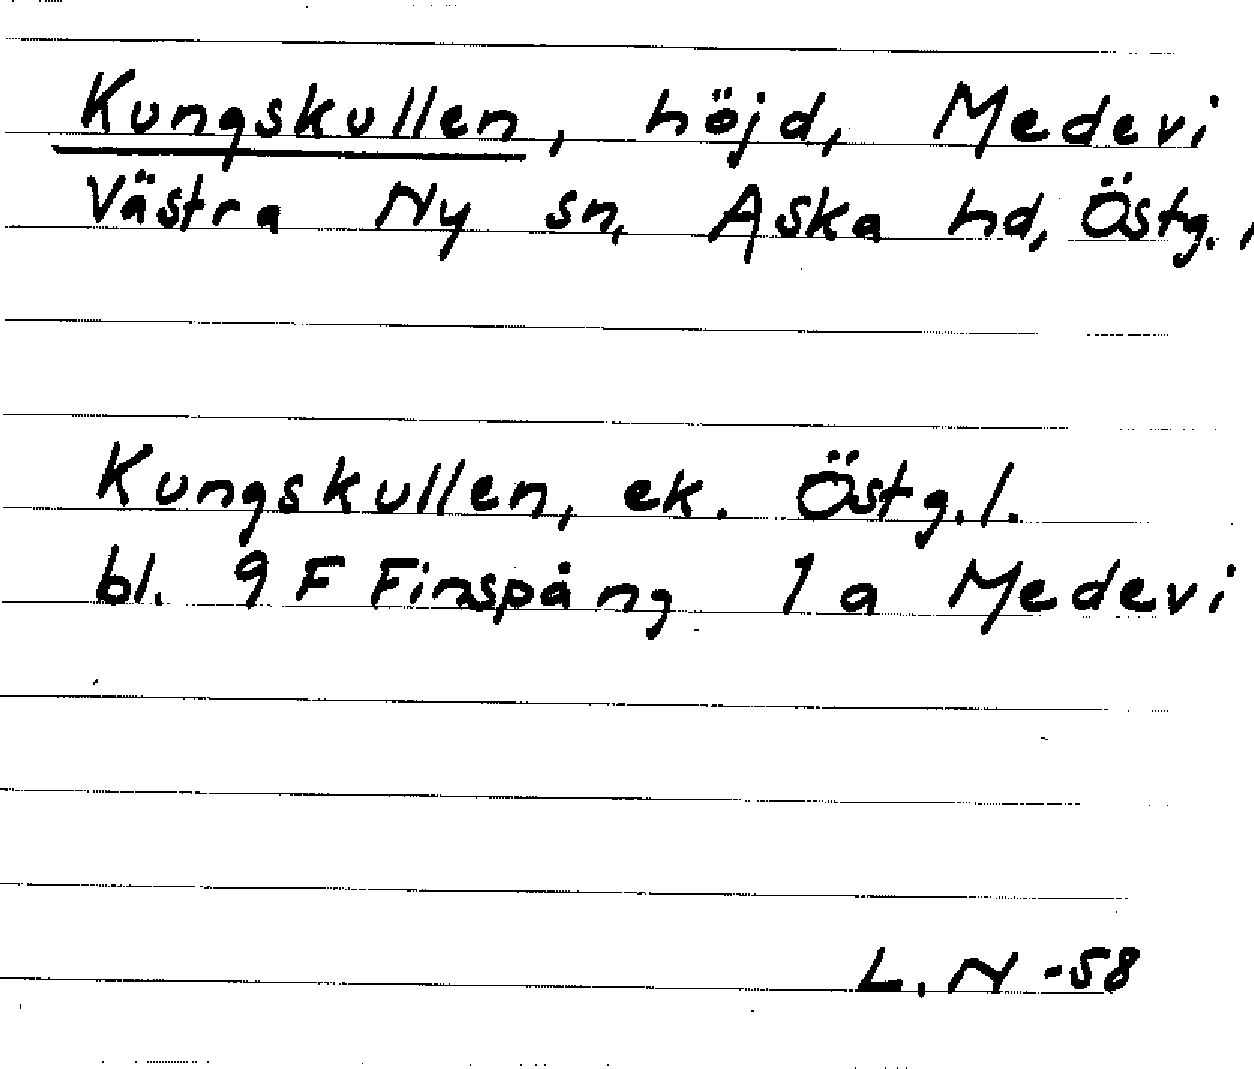 Kungskullen, höjd, Medevi
Västra Ny sn, Aska hd, Östg.,
Kungskullen, ek. Östg.l.
bl. 9 F Finspång 1 a Medevi
L. N -58